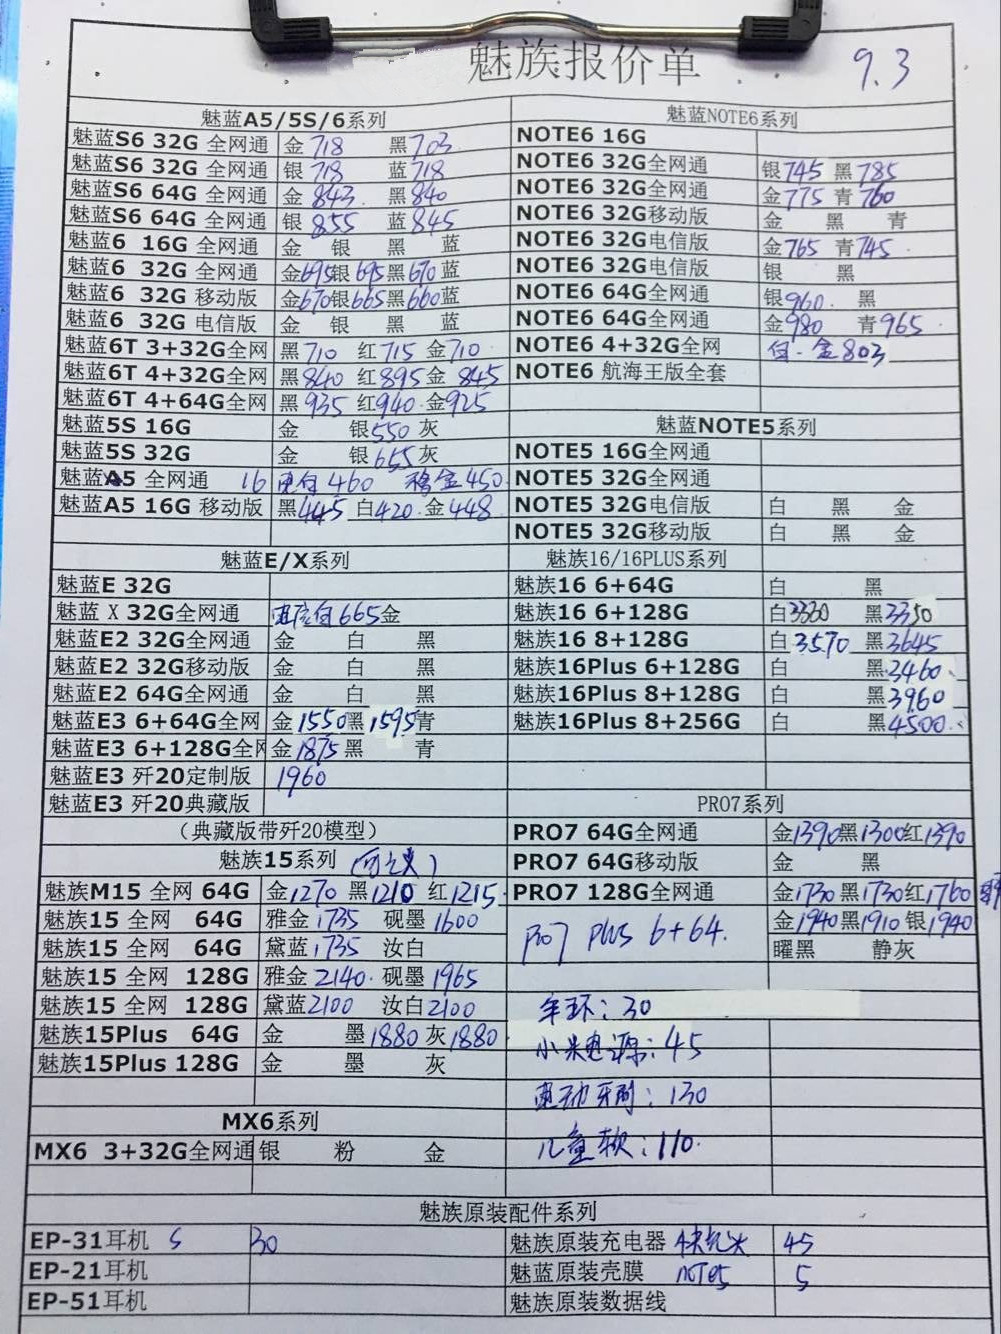 魅族报价单 9.3
魅蓝A5/5S/6系列
魅蓝S6 32G 全网通 金718 黑703
魅蓝S6 32G 全网通 银718 蓝718
魅蓝S6 64G 全网通 金843 黑840
魅蓝S6 64G 全网通 银855 蓝845
魅蓝6 16G 全网通 金 银 黑 蓝
魅蓝6 32G 全网通 金695银695黑670蓝
魅蓝6 32G 移动版 金670银665黑660蓝
魅蓝6 32G 电信版 金 银 黑 蓝
魅蓝6T 3+32G全网 黑710 红715 金710
魅蓝6T 4+32G全网 黑840 红895金 845
魅蓝6T 4+64G全网 黑935 红940 金925
魅蓝5S 16G 金 银550 灰
魅蓝5S 32G 金 银655灰
魅蓝A5 全网通 16 电白460 移金450
魅蓝A5 16G 移动版 黑445 白420 金448
魅蓝E/X系列
魅蓝E 32G
魅蓝X 32G全网通 电信白665金
魅蓝E2 32G全网通 金 白 黑
魅蓝E2 32G移动版 金 白 黑
魅蓝E2 64G全网通 金 白 黑
魅蓝E3 6+64G全网 金1550黑1595青
魅蓝E3 6+128G全网 金1875黑 青
魅蓝E3 歼20定制版 1960
魅蓝E3 歼20典藏版
（典藏版带歼20模型）
魅族15系列
魅族M15 全网 64G 金1270 黑1210 红1215
魅族15 全网 64G 雅金1735 砚墨1600
魅族15 全网 64G 黛蓝1735 汝白
魅族15 全网 128G 雅金2140 砚墨1965
魅族15 全网 128G 黛蓝2100 汝白2100
魅族15Plus 64G 金 墨1880灰1880
魅族15Plus 128G 金 墨 灰
MX6系列
MX6 3+32G全网通 银 粉 金
魅蓝NOTE6系列
NOTE6 16G
NOTE6 32G全网通 银745 黑785
NOTE6 32G全网通 金775 青760
NOTE6 32G移动版 金 黑 青
NOTE6 32G电信版 金765 青745
NOTE6 32G电信版 银 黑
NOTE6 64G全网通 银960 黑
NOTE6 64G全网通 金980 青965
NOTE6 4+32G全网 白.金803
NOTE6 航海王版全套
魅蓝NOTE5系列
NOTE5 16G全网通
NOTE5 32G全网通
NOTE5 32G电信版 白 黑 金
NOTE5 32G移动版 白 黑 金
魅族16/16PLUS系列
魅族16 6+64G 白 黑
魅族16 6+128G 白3330 黑3350
魅族16 8+128G 白3570 黑3645
魅族16Plus 6+128G 白 黑3460
魅族16Plus 8+128G 白 黑3960
魅族16Plus 8+256G 白 黑4500
PRO7系列
PRO7 64G全网通 金1390黑1300红1390
PRO7 64G移动版 金 黑
PRO7 128G全网通 金1730黑1730红1760
Pro7 plus 6+64. 金1940黑1910银1940
曜黑 静灰
手环：30
小米电源：45
电动牙刷：130
儿童软：110
魅族原装配件系列
EP-31耳机 S 30
EP-21耳机
EP-51耳机
魅族原装充电器 快充头 45
魅蓝原装壳膜 NOTE5 5
魅族原装数据线